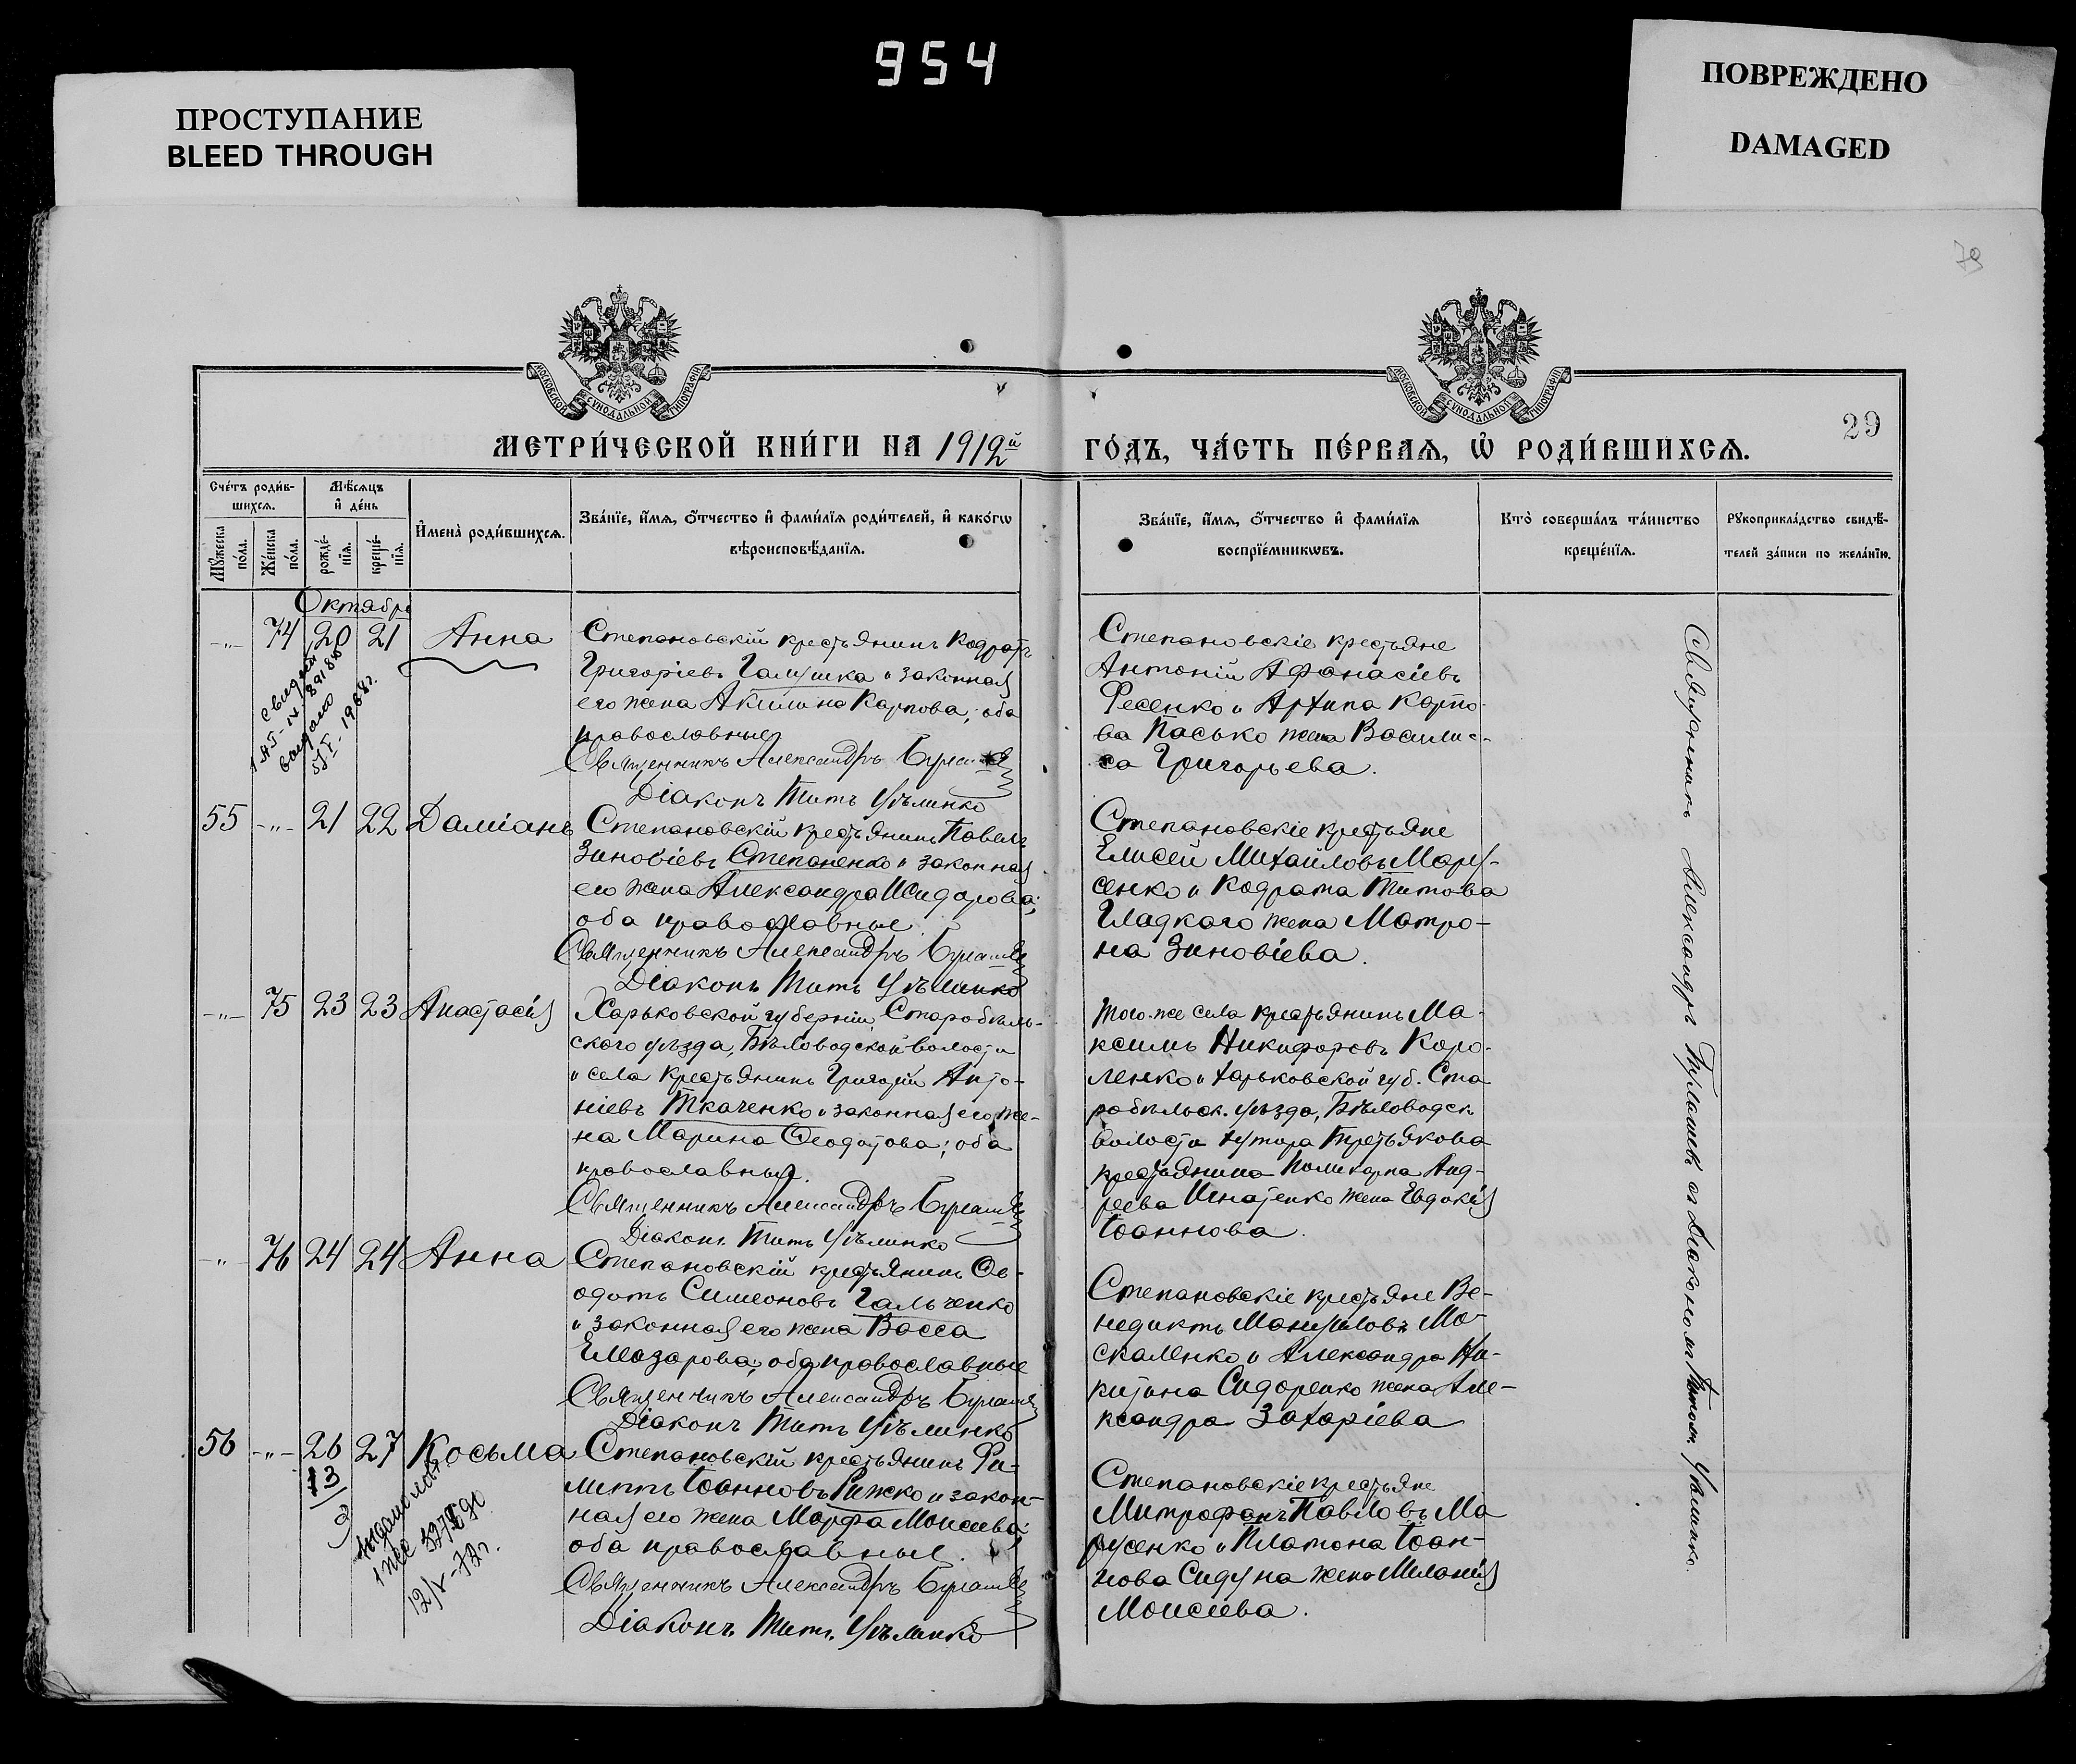 954
ПРОСТУПАНИЕ
BLEED THROUGH
ПОВРЕЖДЕНО
DAMAGED
79
МОСКОВСКОЙ СУНОДАЛЬНОЙ ТИПОГРАФІИ
МОСКОВСКОЙ СУНОДАЛЬНОЙ ТИПОГРАФІИ
29
МЕТРИ́ЧЕСКОЙ КНИ́ГИ НА 1912й ГО́ДЪ, ЧА́СТЬ ПЕ́РВАѦ, Ѡ҆ РОДИ́ВШИХСѦ.
Сче́тъ роди́в-
шихсѧ.
Мѣ́сѧцъ
и҆ де́нь
Мꙋ́жеска
по́ла.
Же́нска
по́ла.
рожде́-
нїѧ.
креще́-
нїѧ.
И҆мена̀ роди́вшихсѧ.
Зва́нїе, и҆́мѧ, ѻ҆́тчество и҆ фами́лїѧ роди́телей, и҆ како́гѡ
вѣроисповѣ́данїѧ.
Зва́нїе, и҆́мѧ, ѻ҆́тчество и҆ фами́лїѧ
воспрїе́мникѡвъ.
Кто̀ соверша́лъ та́инство
креще́нїѧ.
Рꙋкоприкла́дство свидѣ́-
телей за́писи по жела́нїю.
Октябрь
-"- 74 20 21 Анна
Степановскій крестьянинъ Кодратъ
Григоріевъ Галушка и законная
его жена Акилина Карпова; оба
православные
Священникъ Александръ
Діаконъ Титъ
Степановскіе крестьяне
Антоній Афанасіевъ
Фесенко и Архипа Карпо-
ва Пасько жена Васили-
са Григорьева.
55 -"- 21 22 Даміанъ
Степановскій крестьянинъ Павелъ
Зиновіевъ Степаненко и законная
его жена Александра Исидорова;
оба православные
Священникъ Александръ
Діаконъ Титъ
Степановскіе крестьяне
Елисей Михайловъ Мару-
сенко и Кодрата Титова
Гладкаго жена Матро-
на Зиновіева.
-"- 75 23 23 Анастасія
Харьковской губерніи, Старобѣль-
скаго уѣзда, Бѣловодской волости
и села крестьянинъ Григорій Анто-
ніевъ Ткаченко и законная его же-
на Марина Ѳеодотова; оба
православные.
Священникъ Александръ
Діаконъ Титъ
Того-же села крестьянинъ Ма-
ксимъ Никифоровъ Коро-
ленко и Харьковской губ. Ста
робѣльск. уѣзда, Бѣловодск.
волости хутора Третьякова
крестьянина Поликарпа Анд-
реева Игнатенко жена Евдокія
Іоаннова.
-"- 76 24 24 Анна
Степановскій крестьянинъ Ѳе-
одотъ Симеоновъ Гальченко
и законная его жена Васса
Елеазарова; оба православные
Священникъ Александръ
Діаконъ Титъ
Степановскіе крестьяне Ве-
недиктъ Мануиловъ Мо-
скаленко и Александра Ни-
китина Сидоренко жена Але-
ксандра Захаріева
56 -"- 26 27 Косьма
Степановскій крестьянинъ Фи-
липпъ Іоанновъ Рижко и закон-
ная его жена Марфа Моисеева;
оба православные.
Священникъ Александръ
Діаконъ Титъ
Степановскіе крестьяне
Митрофанъ Павловъ Ма
русенко и Платона Іоан-
нова Сидуна жена Меланія
Моисеева.
Священникъ Александръ съ Діакономъ Титомъ